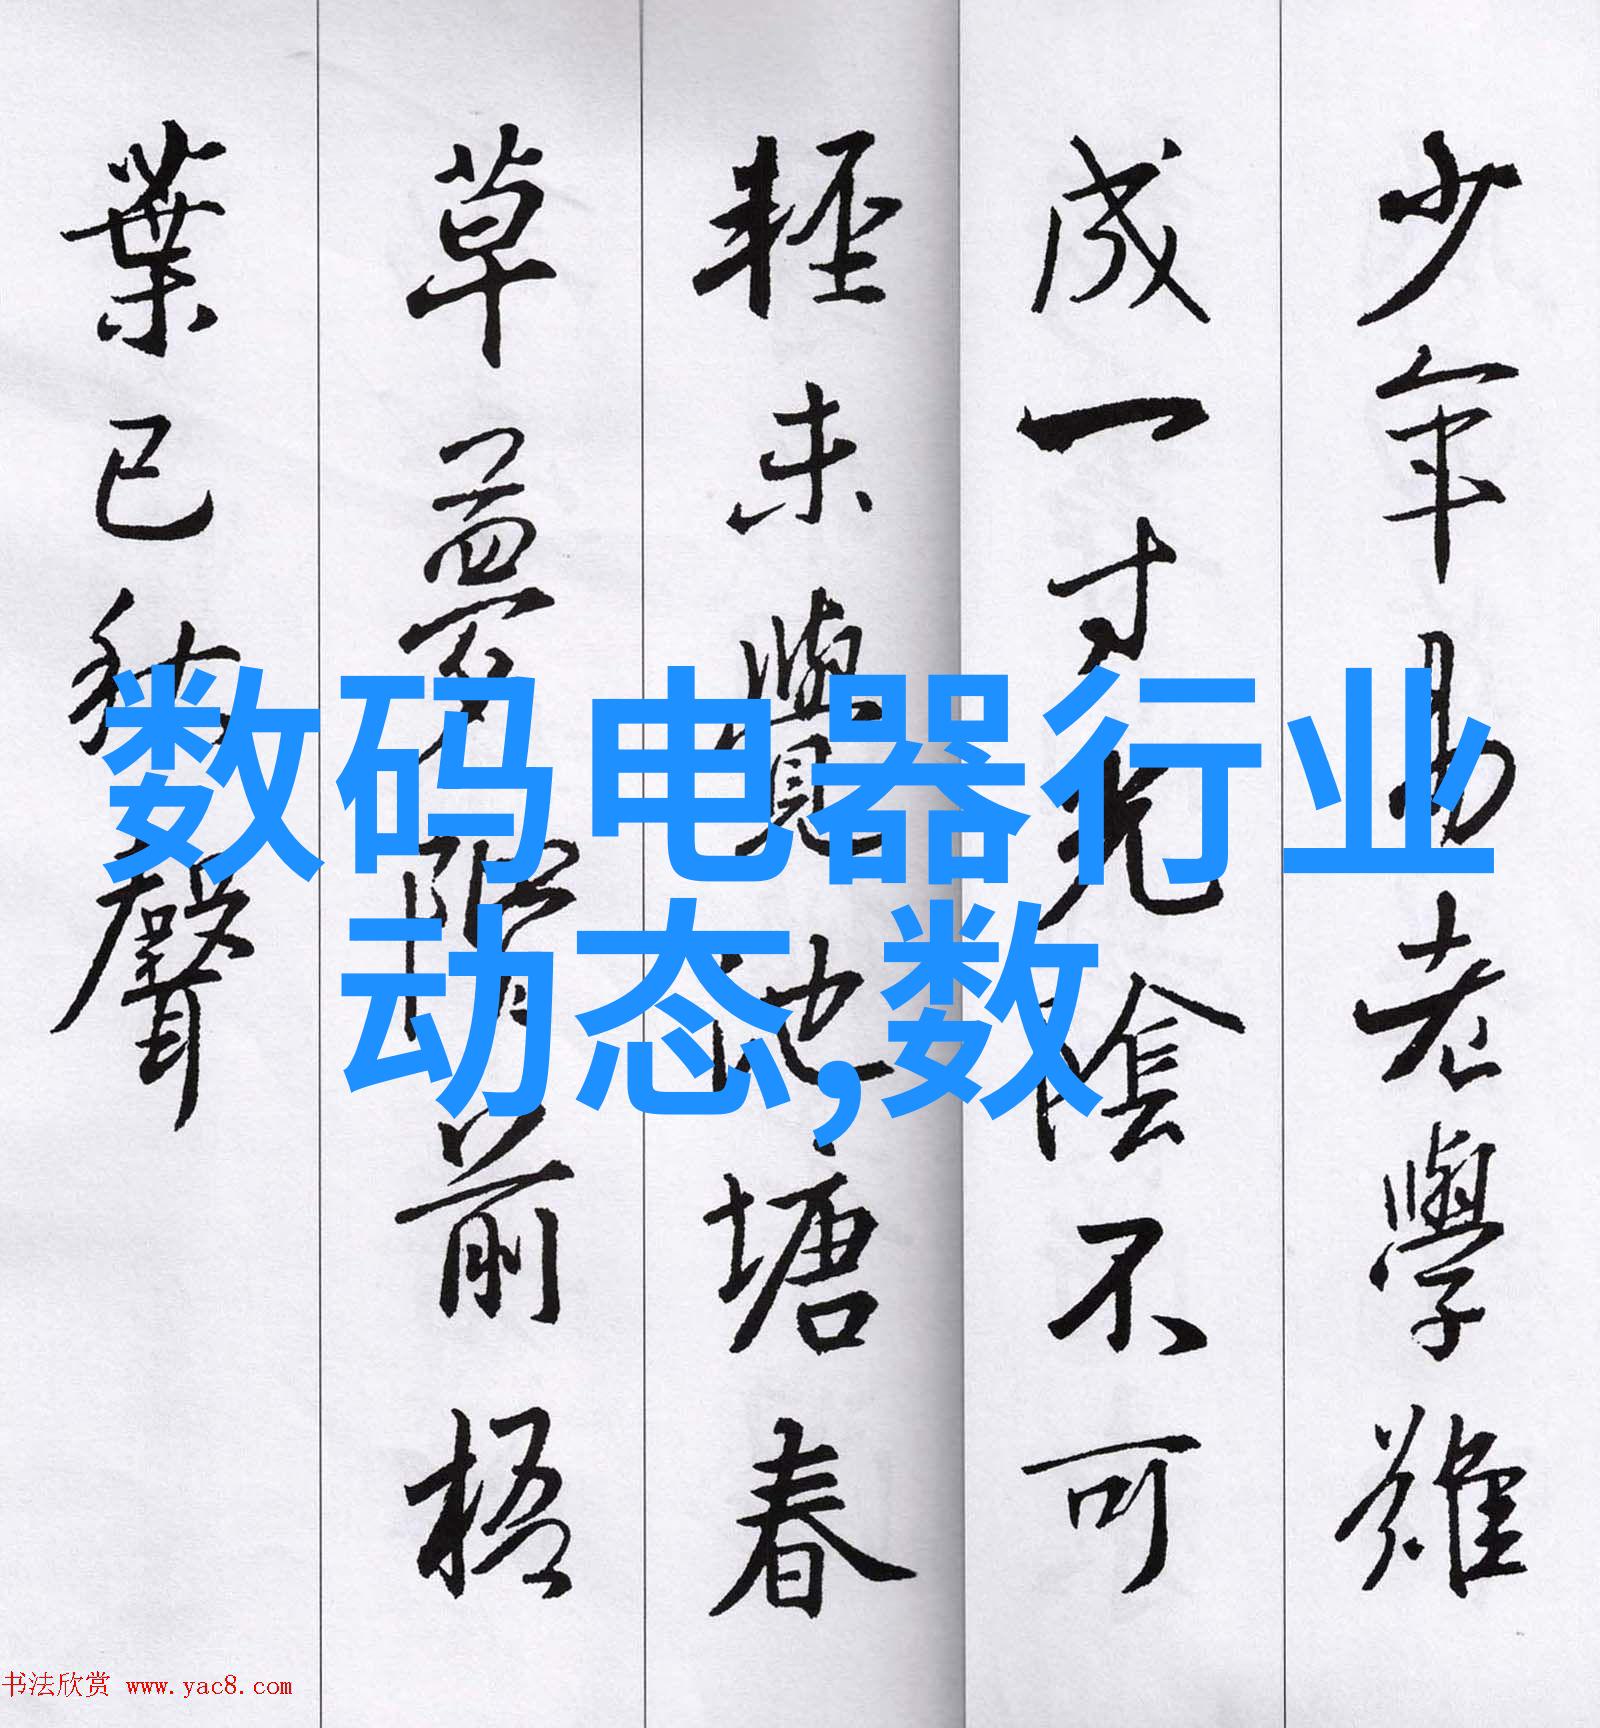 少年易老學難
成一寸光陰不可
輕未覺池塘春
草夢階前梧
葉已秋聲
数码电器行业
动态,数
书法欣赏 www.yac8.com